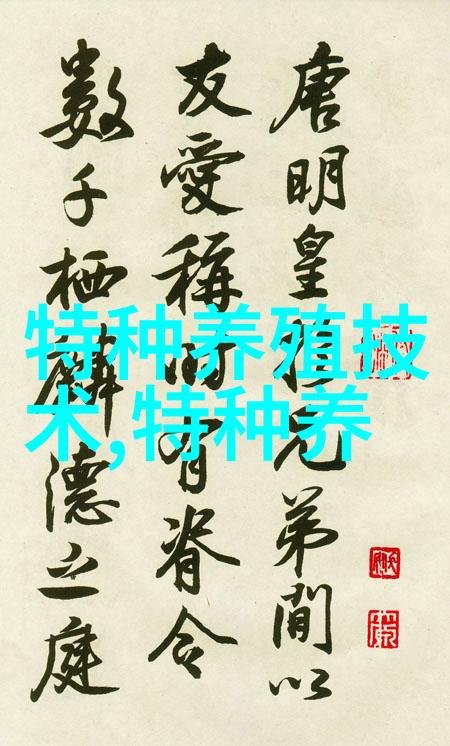 唐明皇於兄弟間以
友愛稱時有脊令
數千栖麟德之庭
特种养殖技
术,特种养